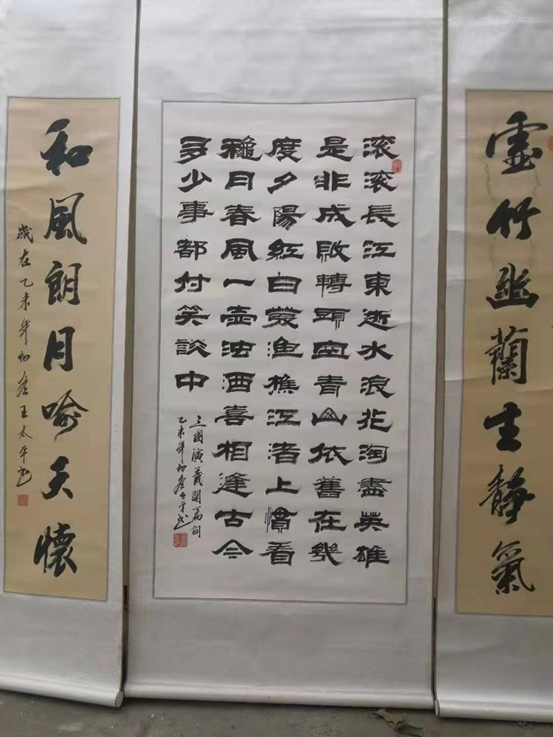 虚竹幽蘭生静氣
滚滚長江東逝水浪花淘盡英雄
是非成敗轉頭空青山依舊在幾
度夕陽紅白髮漁樵江渚上慣看
穐月春風一壺浊酒喜相逢古今
多少事都付笑談中
三國演義開篇詞
乙未年初春太平书
和風朗月喻天懷
歲在乙未年初春王太平书